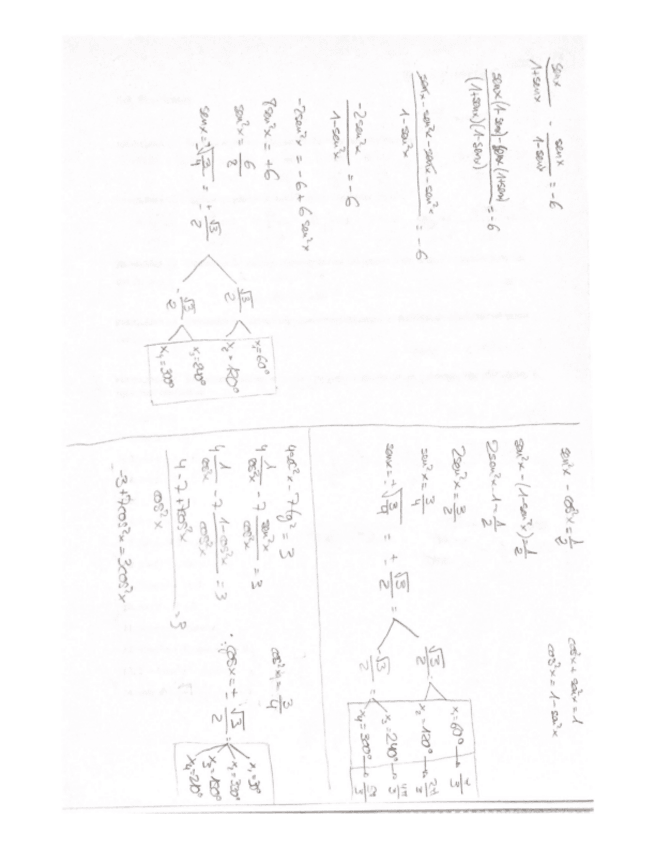 senx/1+senx - senx/1-senx = -6
senx(1-senx)-senx(1+senx)/(1+senx)(1-senx) = -6
senx-sen²x-senx-sen²x/1-sen²x = -6
-2sen²x/1-sen²x = -6
-2sen²x = -6+6sen²x
8sen²x = +6
sen²x = 6/
senx = ±√3/4 = ±√3/2
√3/2
x₁=60°
x₂=120°
-√3/2
x₃=240°
x₄=300°
sen²x - cos²x = 1/2
cos²x + sen²x = 1
cos²x = 1-sen²x
sen²x-(1-sen²x)=1/2
2sen²x-1=1/2
2sen²x=3/2
sen²x=3/4
senx=±√3/4 = ±√3/2 =
√3/2
x₁=60° → π/3
x₂=120° → 2π/3
-√3/2
x₃=240° → 4π/3
x₄=300° →
x - 7tg² = 3
4 1/cos²x - 7 sen²x/cos²x = 3
4 1/cos²x - 7 1-cos²x/cos²x = 3
4-7+7cos²x/cos²x = 3
-3+7cos²x = 3cos²x
cos²x = 3/4
cosx = ±√3/2 =
x₁=30°
x₂=330°
x₃=150°
x₄=210°